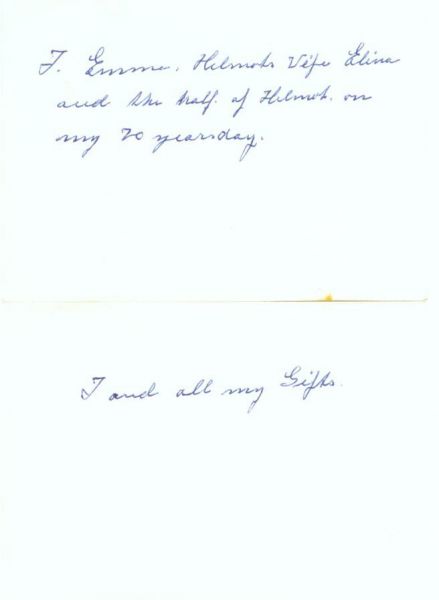 I. Emma, Helmots Vife Elina
and the half. of Helmot. on
my 70 yearsday.
I and all my Gifts.